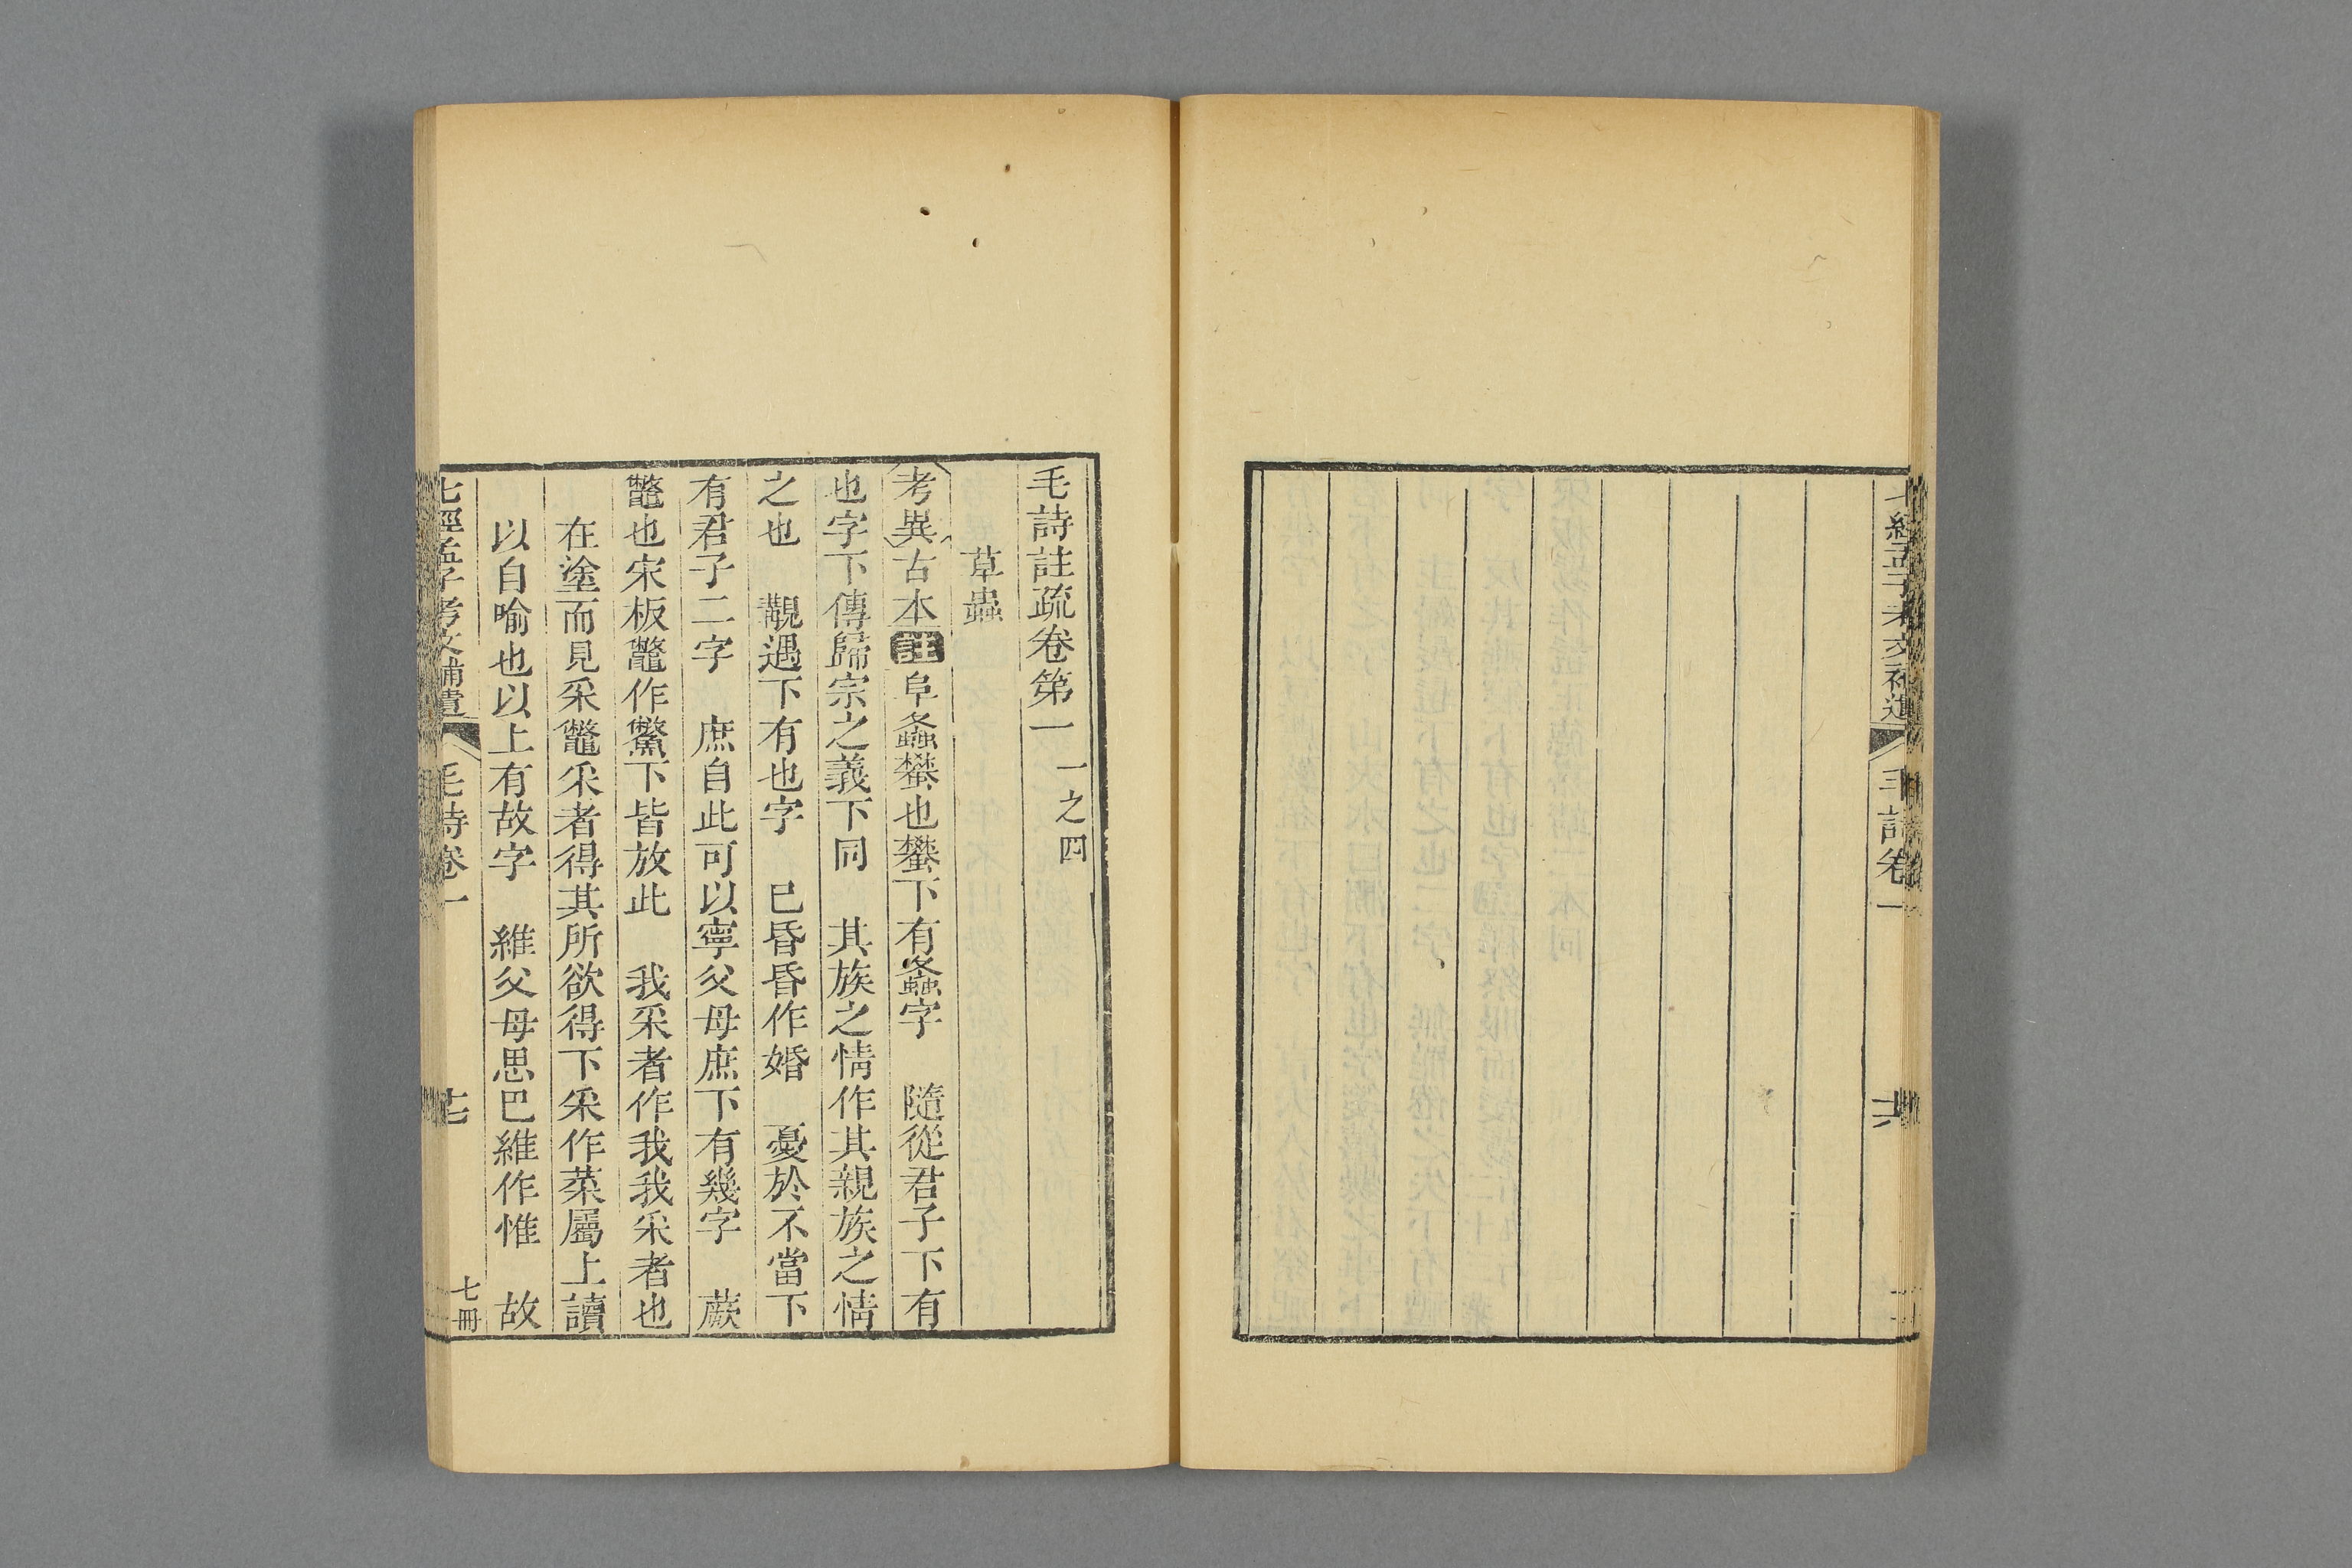 七經孟子考文補遺 毛詩卷一 十六
毛詩註疏卷第一 一之四
草蟲
考異古本註阜螽蠜也蠜下有螽字 隨從君子下有
也字下傳歸宗之義下同 其族之情作其親族之情
之也 觀遇下有也字 已昏昏作婚 憂於不當下
有君子二字 庶自此可以寧父母庶下有幾字 蕨
鼈也宋板鼈作鷩下皆放此 我采者作我我采者也
在塗而見采鼈采者得其所欲得下采作菜屬上讀
以自喻也以上有故字 維父母思巴維作惟 故
七經孟子考文補遺 毛詩卷一 十七 七冊